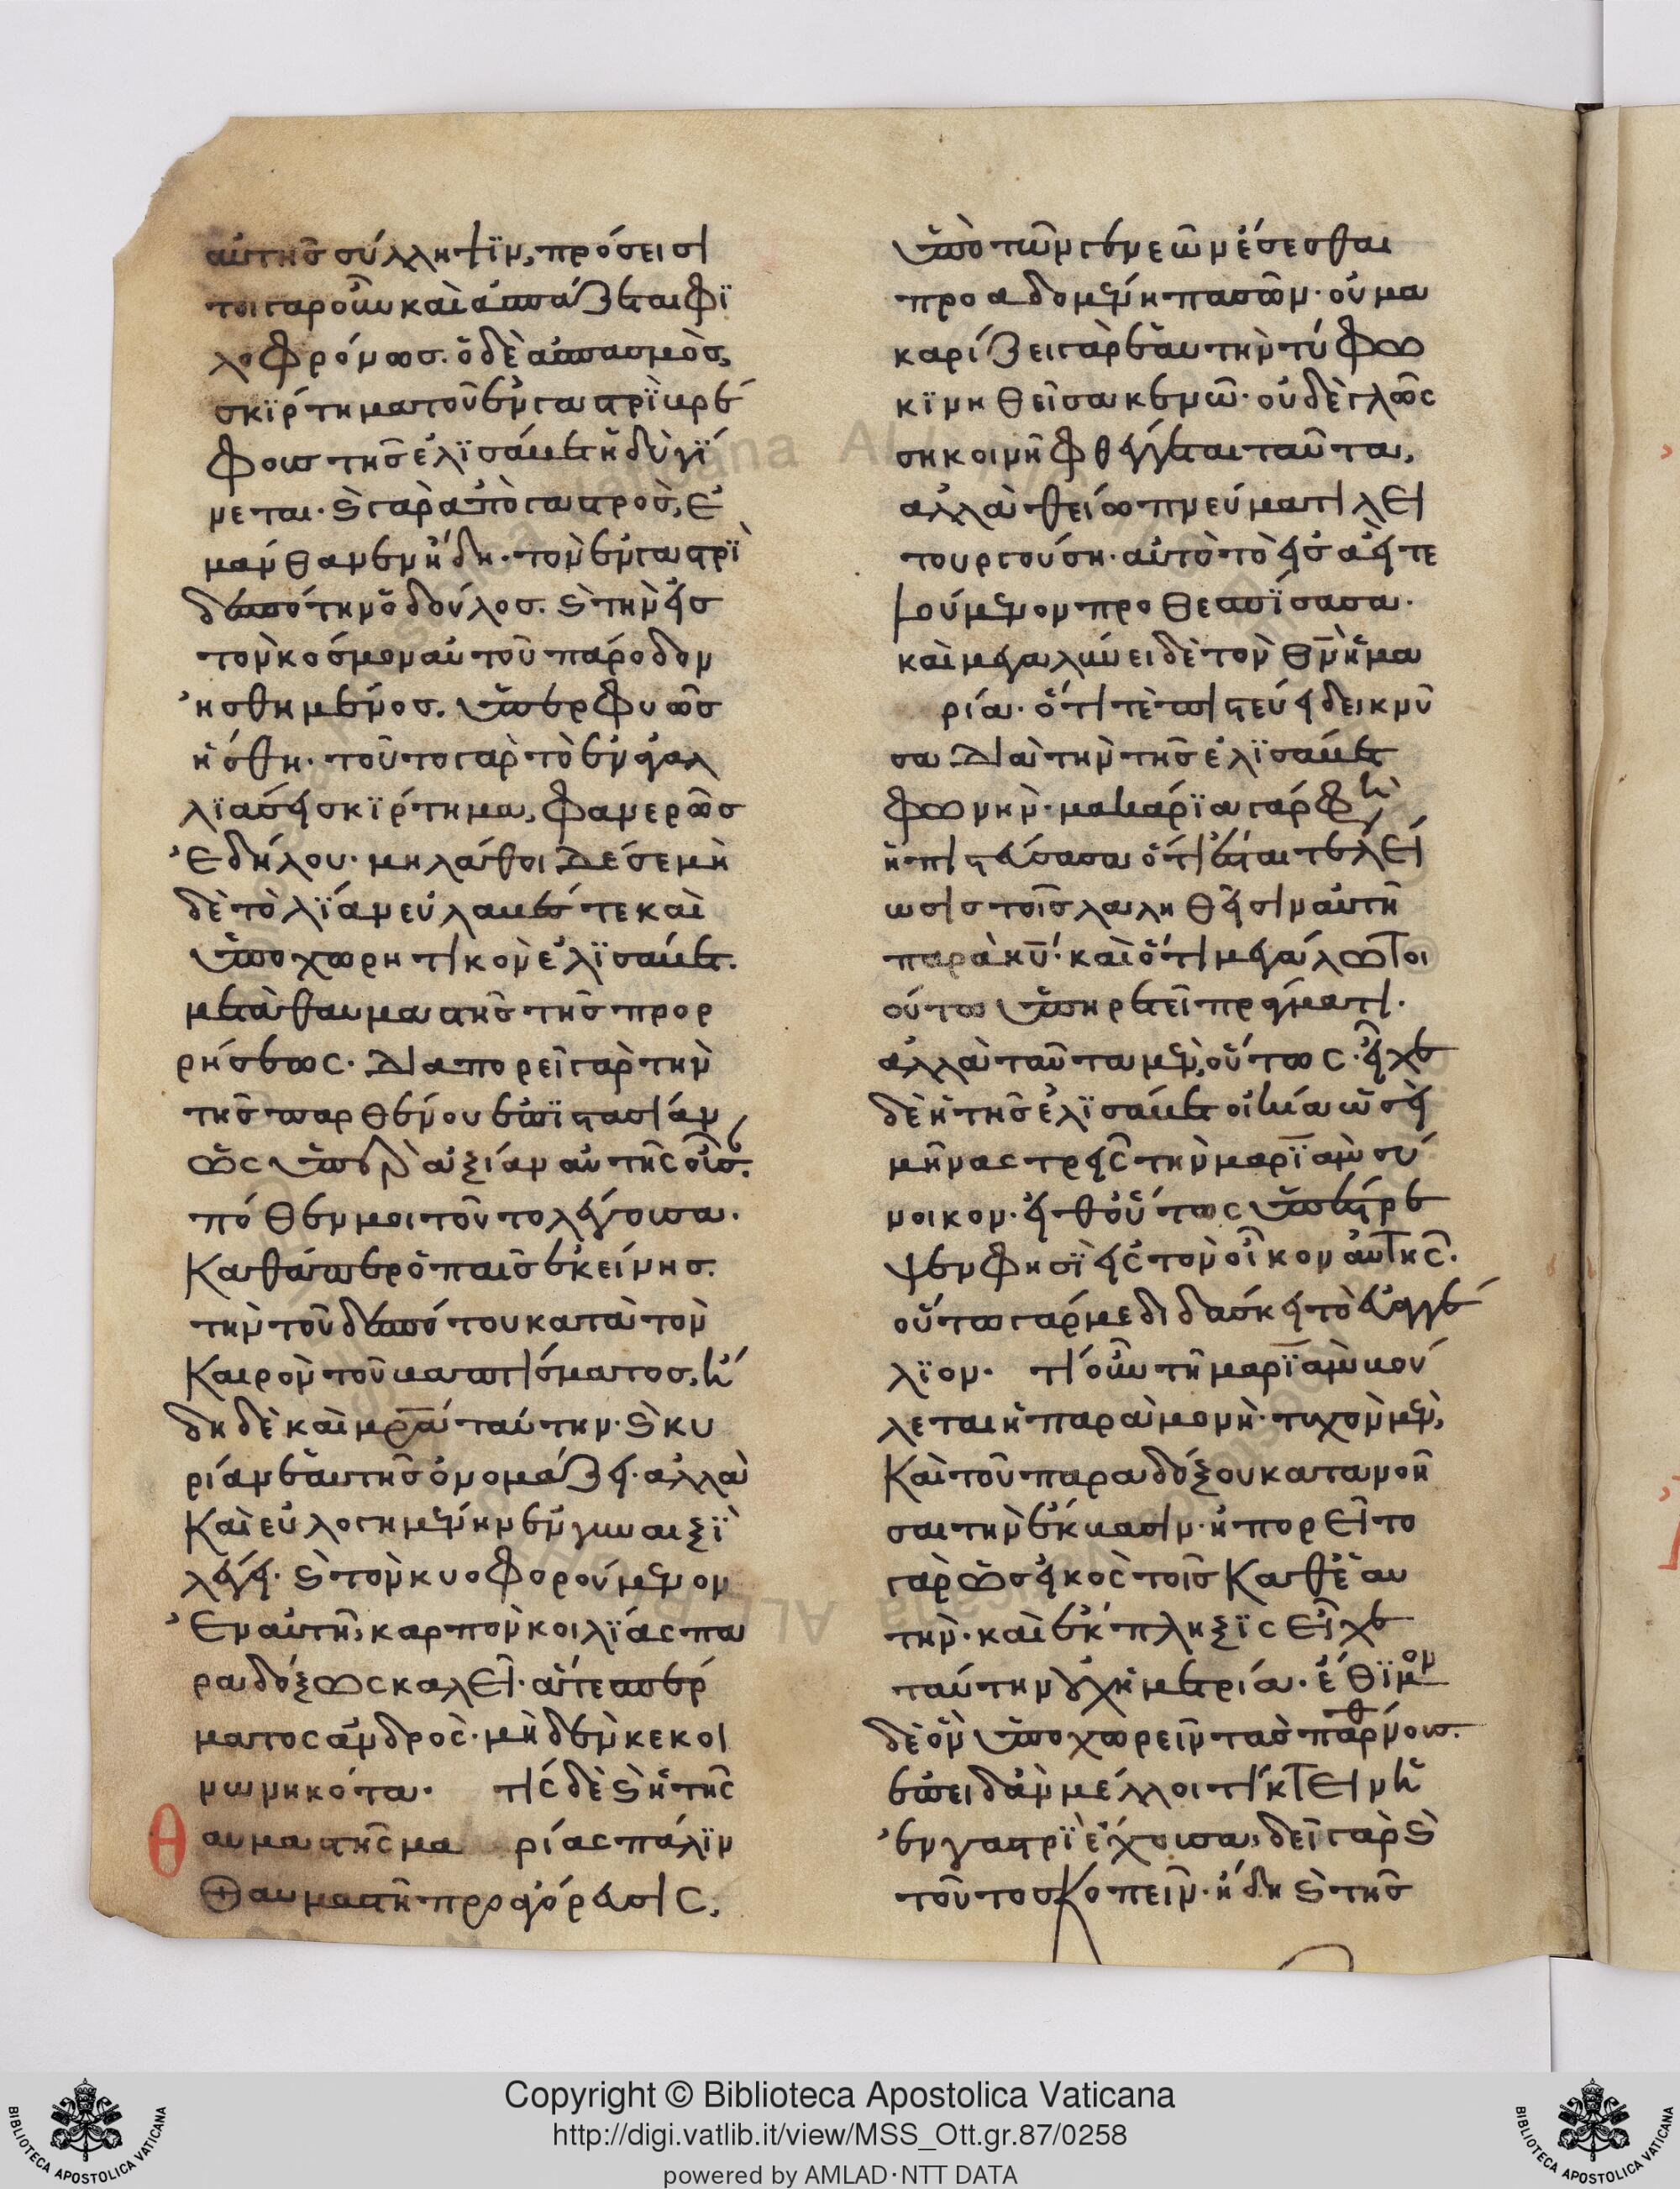 αὐτῆς σύλληψϊν, πρόσεισι
τοιγαροῦν καὶ ἀσπάζεται φϊ
λοφρόνως. ὁ δὲ ἀσπασμὸς,
σκϊρτημα τοῦ ἐν γαστρὶ βρέ
φους τῆς ἐλϊσάβετ ἠδὺ γί
νεται. καὶ γὰρ ἀπὸ γαστρὸς, ἐ
μάνθανεν ἤδη. τὸν ἐν γαστρὶ
δεσπότην ὁ δοῦλος. καὶ τὴν εἰς
τὸν κόσμον αὐτοῦ πάροδον
ἠσθημένος. ὑπερφυῶς
ἥσθη. τοῦτο γὰρ τὸ ἐν ἀγαλ
λϊάσει σκϊρτημα, φανερῶς
ἐδήλου. μὴ λάθοι δέ σε μὴ
δὲ τὸ λϊαν εὐλαβές τε καὶ
ὑποχωρητικὸν ἐλϊσάβετ.
μετὰ θαυμαστῆς τῆς προρ
ρήσεως. διαπορεῖ γὰρ τὴν
τῆς παρθένου ἐπϊστασίαν
ὡς ὑπὲρ ἀξίαν αὐτῆς οὖσαν.
πόθεν μοι τοῦτο λέγουσα.
καθάπερ ὁ παῖς ἐκείνης.
τὴν τοῦ δεσπότου κατὰ τὸν
καιρὸν τοῦ βαπτίσματος. ἤ
δη δὲ καὶ μρα ταύτην. καὶ κυ
ρίαν ἑαυτῆς ὀνομάζει. ἀλλὰ
καὶ εὐλογημένην ἐν γυναιξϊ
λέγει. καὶ τὸν κυοφορούμενον
ἐν αὐτῇ, καρπὸν κοιλϊας πα
ραδόξως καλεῖ. ἅτε σπέρ
ματος ἀνδρὸς. μηδὲν κεκοι
νωνηκότα. τίς δὲ καὶ ἡ τῆς
θαυμαστῆς μαρίας πάλϊν
Θαυμαστὴ προαγόρευσις,
ὑπὸ τῶν γενεῶν ἔσεσθαι
προαδομένη πασῶν. οὐ μα
καρίζει γὰρ ἑαυτὴν τύφω
κϊνηθεῖσα κενῶ. οὐδὲ γλῶσ
ση κοινῆ φθέγγεται ταῦτα,
ἀλλὰ θείω πνεύματι λει
τουργούση. αὐτὸ τὸ εἰς ἀεὶ τε
λούμενον προθεσπϊσασα.
καὶ μεγαλύνει δὲ τὸν θν ἡ μα
ρία. ὅτι τὲ πιστεύει δεικνῦ
σα διὰ τὴν τῆς ἐλϊσάβετ
φωνὴν. μακαρϊα γάρ φη
ἡ πιστεύσασα ὅτι ἔσται τελεί
ωσις τοῖς λαληθεῖσιν αὐτῆ
παρὰ κυ. καὶ ὅτι μεγάλω τοι
οὕτω ὑπηρετεῖ πράγματι.
ἀλλὰ ταῦτα μὲν, οὕτως. εἶχε
δὲ ἡ τῆς ἐλϊσάβετ οἰκία ὡσεὶ
μῆνας τρεῖς τὴν μαρϊαμ σύ
νοικον. εἶθ οὕτως ὑπέστρε
ψεν φησϊ εἰς τὸν οἶκον αὐτῆς.
οὕτω γάρ με διδάσκει τὸ εὐαγγέ
λϊον. τί οὖν τῆ μαρϊαμ βού
λεται ἡ παραμονὴ. τυχὸν μὲν,
καὶ τοῦ παραδόξου κατανοῆ
σαι τὴν ἔκβασιν. ἠπορεῖτο
γὰρ ὡς εἰκὸς τοῖς καθ ἑαυ
τὴν. καὶ ἔκπληξϊς εἶχε
ταύτην οὐχ ἡ μετρία. ἔθϊμον
δὲ ὂν ὑποχωρεῖν τὰς παρθένους.
ἐπειδὰν μέλλοι τίκτειν ἡ
ἐν γαστρϊ ἔχουσα, δεῖ γὰρ καὶ
τοῦτο σκοπεῖν. ἤδη καὶ τῆς
Copyright © Biblioteca Apostolica Vaticana
http://digi.vatlib.it/view/MSS_Ott.gr.87/0258
powered by AMLAD·NTT DATA
BIBLIOTECA APOSTOLICA VATICANA
BIBLIOTECA APOSTOLICA VATICANA